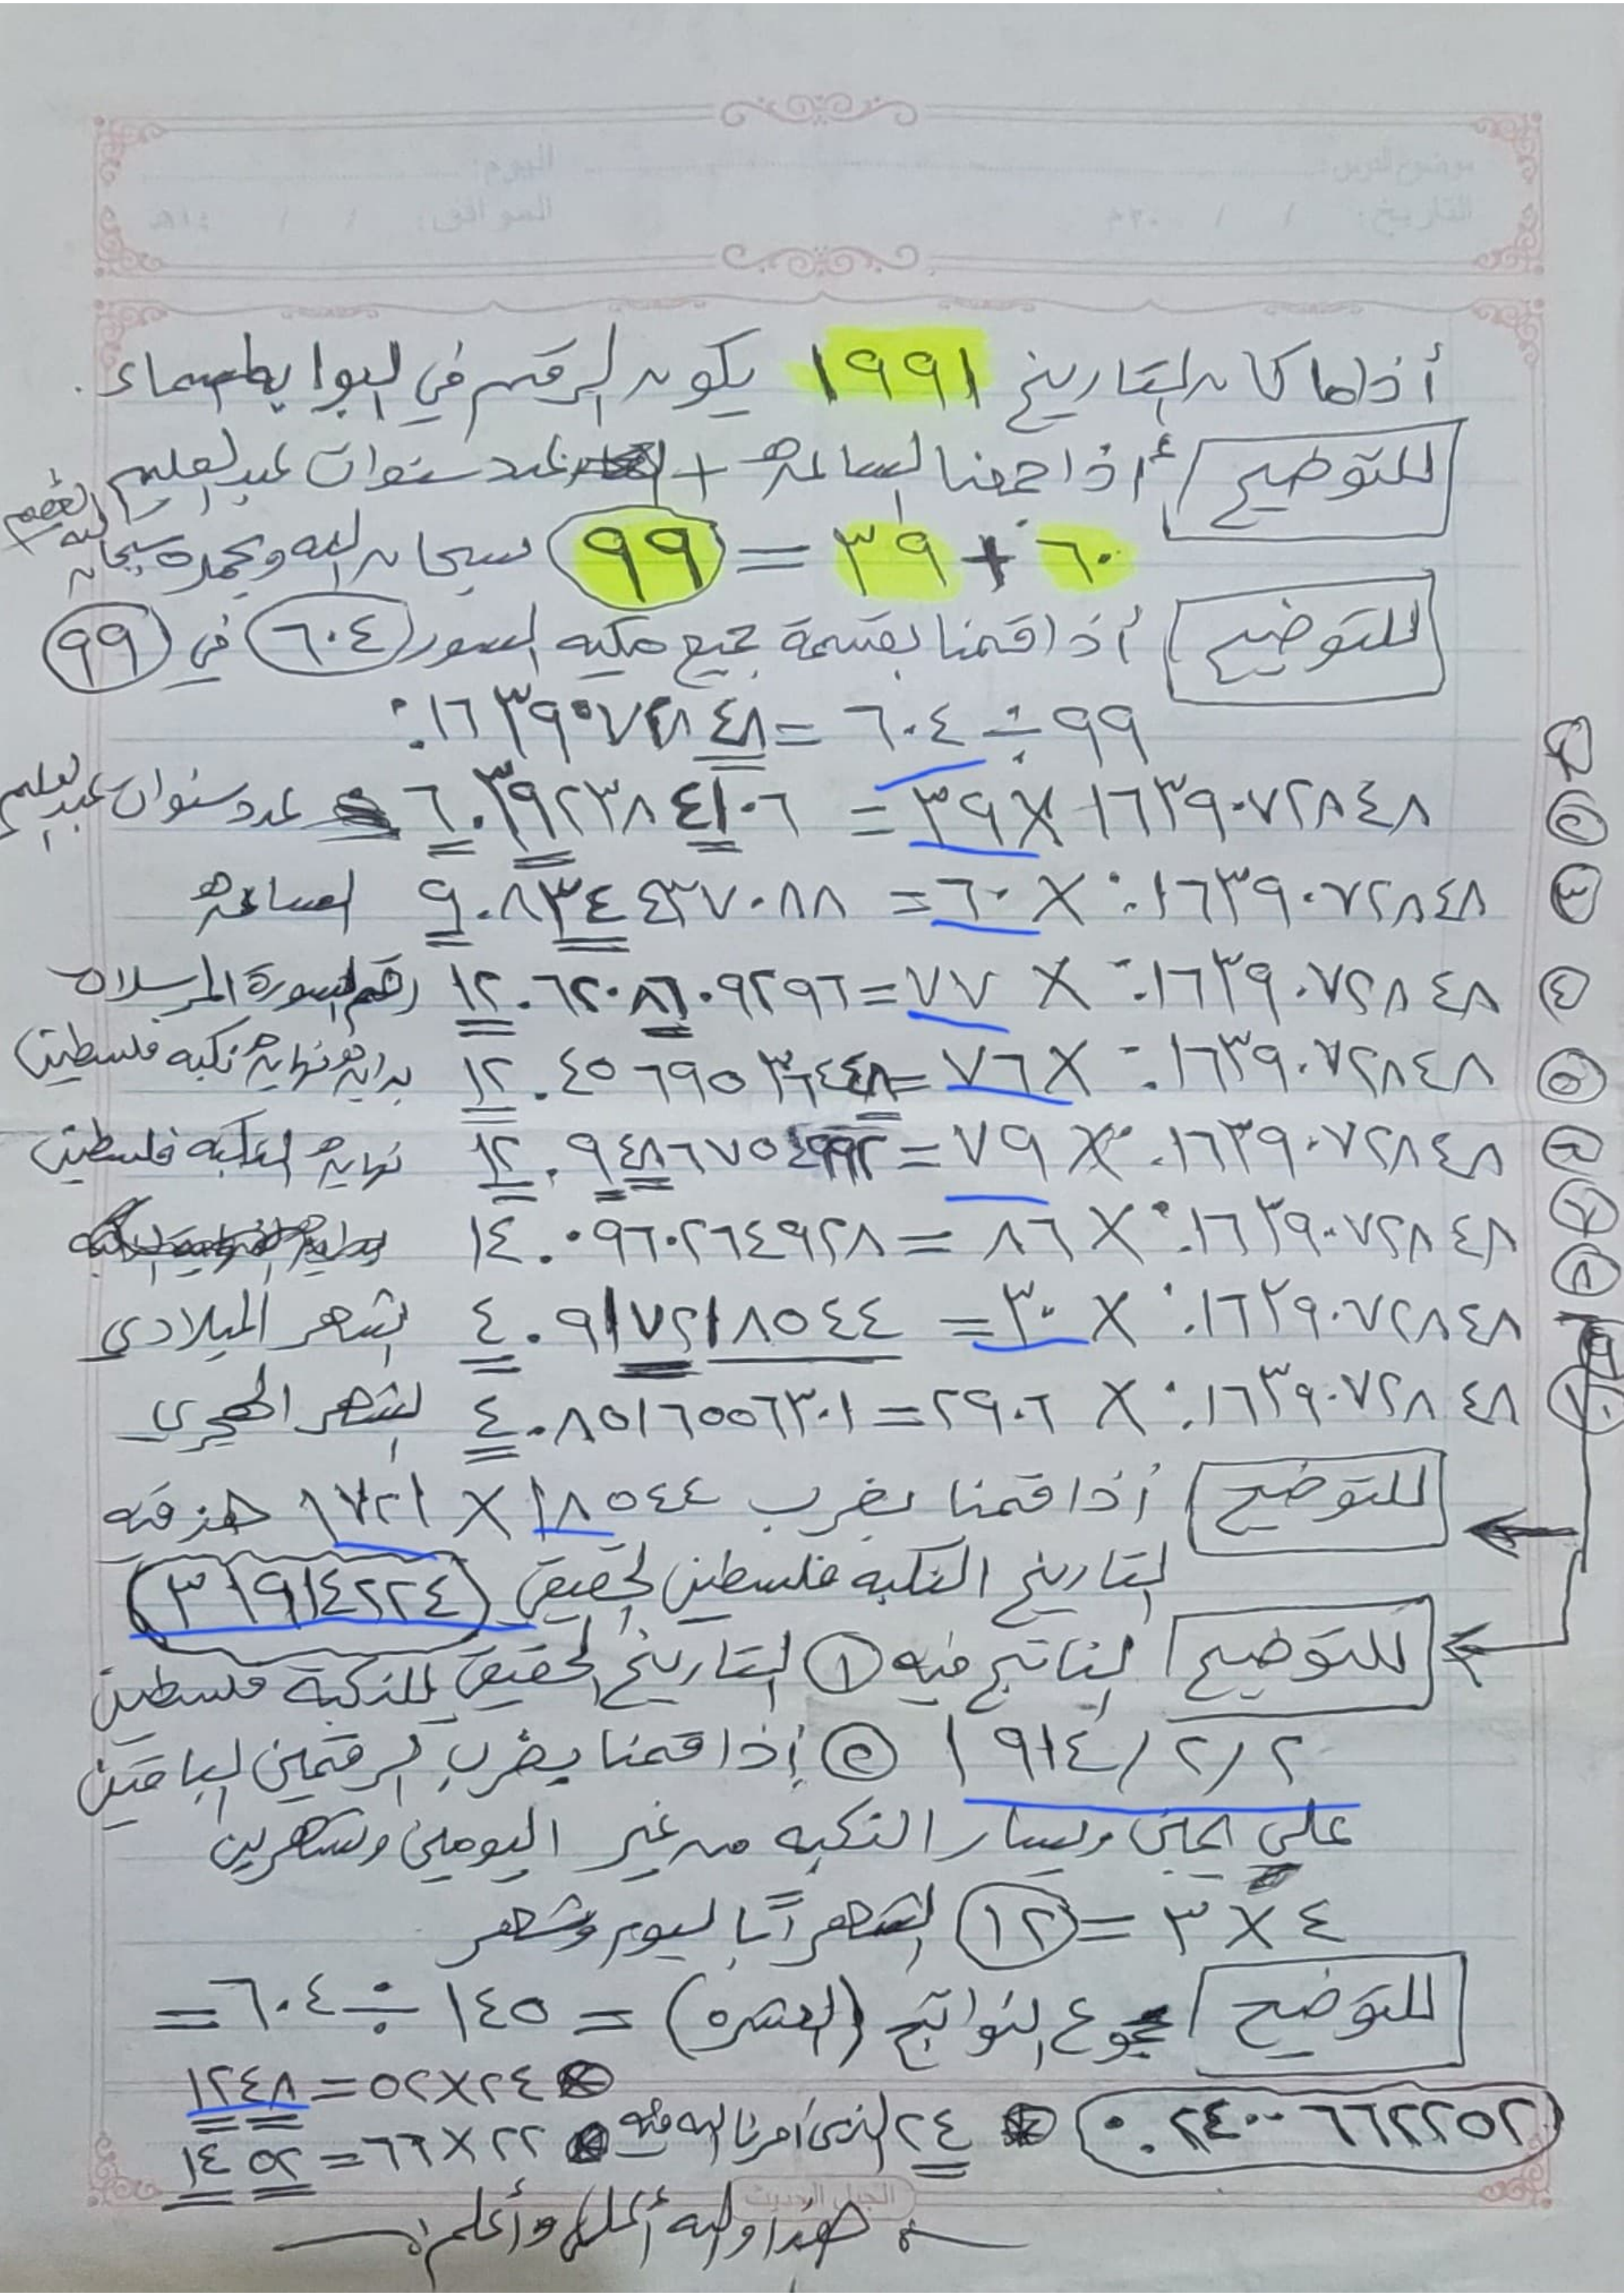 أذا ما كان التاريخ ١٩٩١ يكون الرقم في البوابة سماء.
للتوضيح أذا جمعنا الساعة + عدد سنوات عبد العليم
٦٠ + ٣٩ = ٩٩ سبحان الله وبحمده سبحان الله العظيم
للتوضيح أذا قمنا بقسمة جميع السور ٦٠٤ في ٩٩
٩٩ ÷ ٦٠٤ = ٠.١٦٣٩٠٧٢٨٤٨
١٦٣٩٠٧٢٨٤٨ × ٣٩ = ٦.٣٩٢٣٨٤١٠٦ عدد سنوات عبد العليم
٣ ٠.١٦٣٩٠٧٢٨٤٨ × ٦٠ = ٩.٨٣٤٤٣٧٠٨٨ الساعة
٤ ٠.١٦٣٩٠٧٢٨٤٨ × ٧٧ = ١٢.٦٢٠٨٦٠٩٢٩٦ رقم السورة المرسلات
٥ ٠.١٦٣٩٠٧٢٨٤٨ × ٧٦ = ١٢.٤٥٦٩٥٣٦٤٤٨ بداية نهاية نكبه فلسطين
٠.١٦٣٩٠٧٢٨٤٨ × ٧٩ = ١٢.٩٤٨٦٧٥٤٩٩٢ نهاية النكبه فلسطين
٠.١٦٣٩٠٧٢٨٤٨ × ٨٦ = ١٤.٠٩٦٠٢٦٤٩٢٨
٠.١٦٣٩٠٧٢٨٤٨ × ٣٠ = ٤.٩١٧٢١٨٥٤٤ الشهر الميلادي
١٠ ٠.١٦٣٩٠٧٢٨٤٨ × ٢٩.٦ = ٤.٨٥١٦٥٥٦٣٠١ الشهر الهجري
للتوضيح أذا قمنا بضرب ١٨٥٤٤ × ١٧٢١
التاريخ النكبه فلسطين الحقيقي ٣١٩١٤٢٢٤
للتوضيح الناتج فيه ١ التاريخ الحقيقي للنكبة فلسطين
٢/٢/١٩١٤ ٢ إذا قمنا بضرب الرقمين الباقين
علي اليمين ويسار النكبه من غير اليومين وشهرين
٤ × ٣ = ١٢ الشهر اليوم وشهر
للتوضيح مجموع النواتج (العشره) = ١٤٥ ÷ ٦٠٤ =
٢٤×٥٢ = ١٢٤٨
٠.٢٤٠٠٦٦٢٢٥٢ ٢٤ الذي أمرنا الله فيه ٢٢×٦٦ = ١٤٥٢
هذا والله أعلى وأعلم